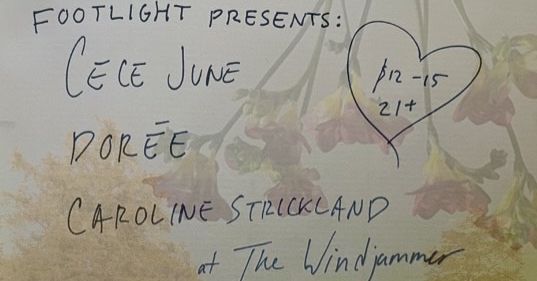 FOOTLIGHT PRESENTS:
CECE JUNE
$12-15
21+
DORĒE
CAROLINE STRICKLAND
at The Windjammer